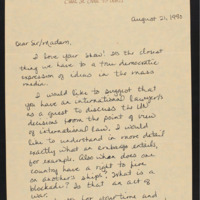 August 21, 1990
Dear Sir/Madam,
I love your show! It's the closest
thing we have to a true democratic
expression of ideas in the mass
media.
I would like to suggest that
you have an international lawyer
as a guest to discuss the UN
decisions from the point of view
of international law. I would
like to understand in more detail
exactly what an embargo entails,
for example. Also when does one
country have a right to fire
on another's ships? What is a
blockade? Is that an act of
war.
you for your time and